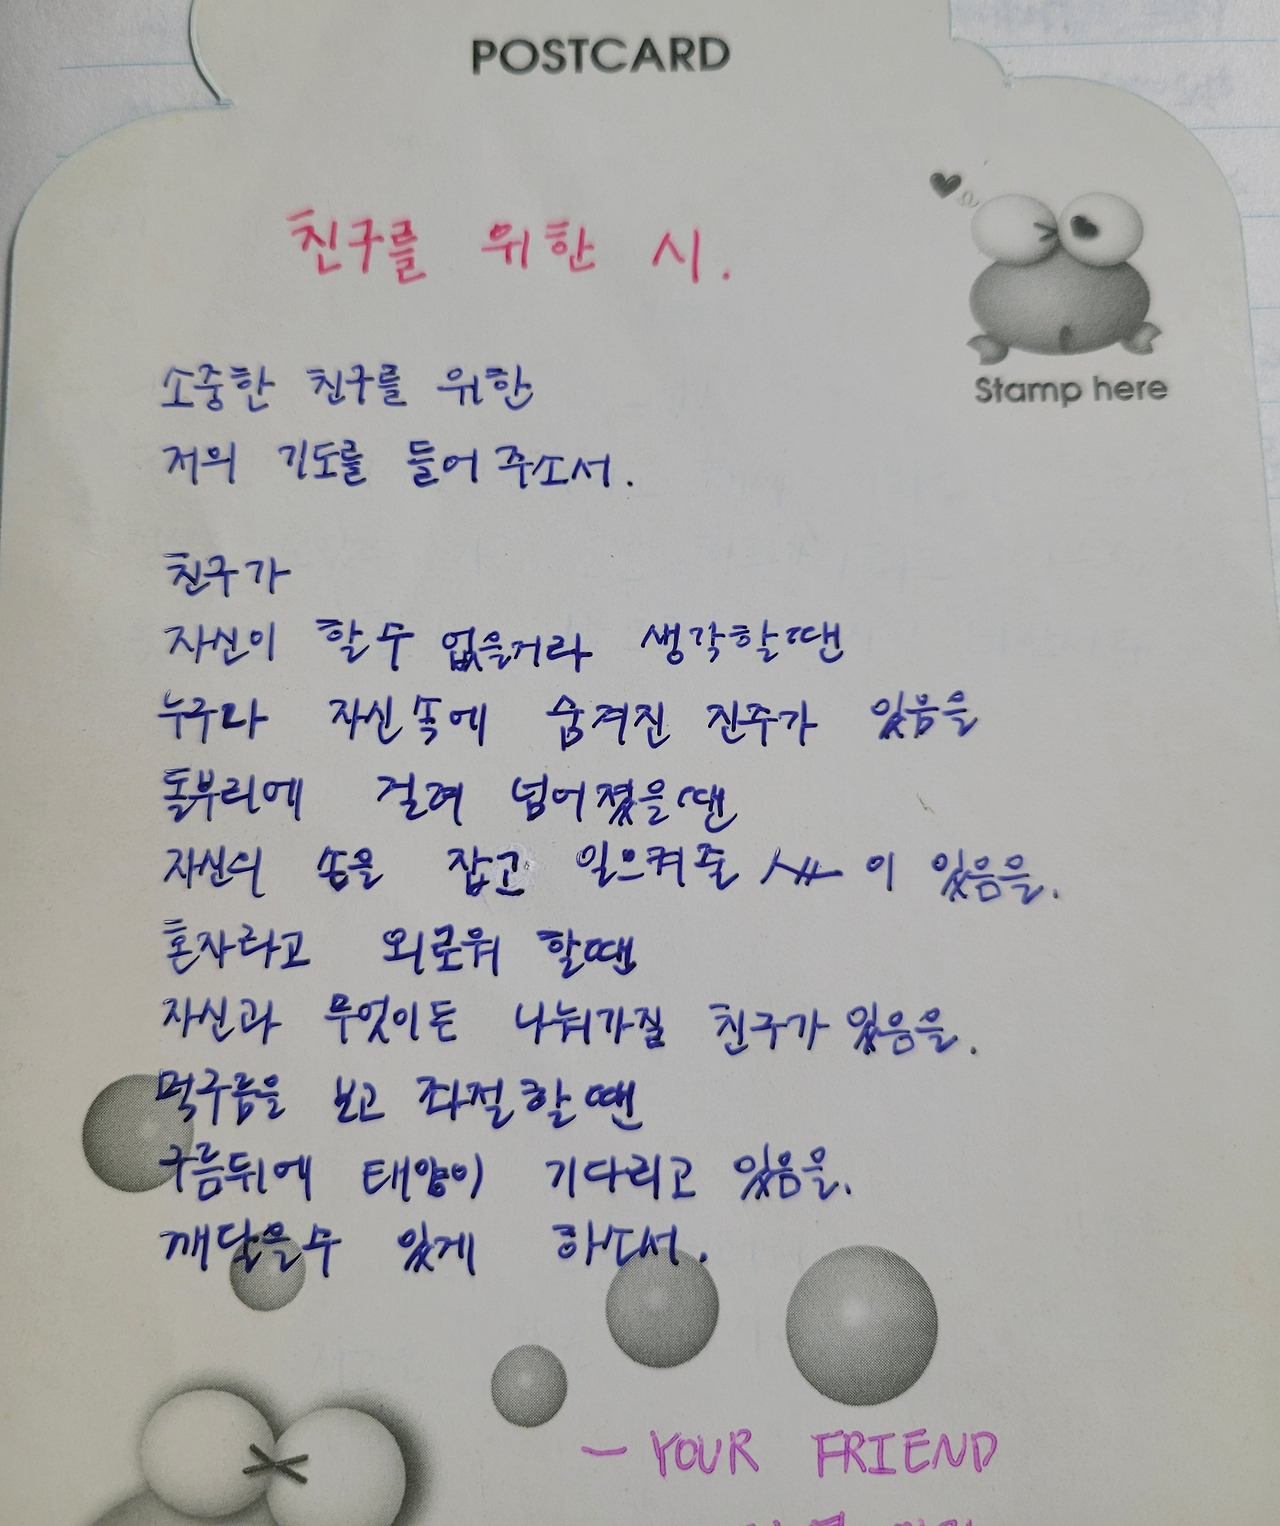 POSTCARD
친구를 위한 시.
Stamp here
소중한 친구를 위한
저의 기도를 들어 주소서.
친구가
자신이 할수 없을거라 생각할땐
누구나 자신속에 숨겨진 진주가 있음을
돌부리에 걸려 넘어졌을땐
자신의 손을 잡고 일으켜줄 이 있음을.
혼자라고 외로워 할땐
자신과 무엇이든 나눠가질 친구가 있음을.
먹구름을 보고 좌절할땐
구름뒤에 태양이 기다리고 있음을.
깨달을수 있게 하소서.
- YOUR FRIEND